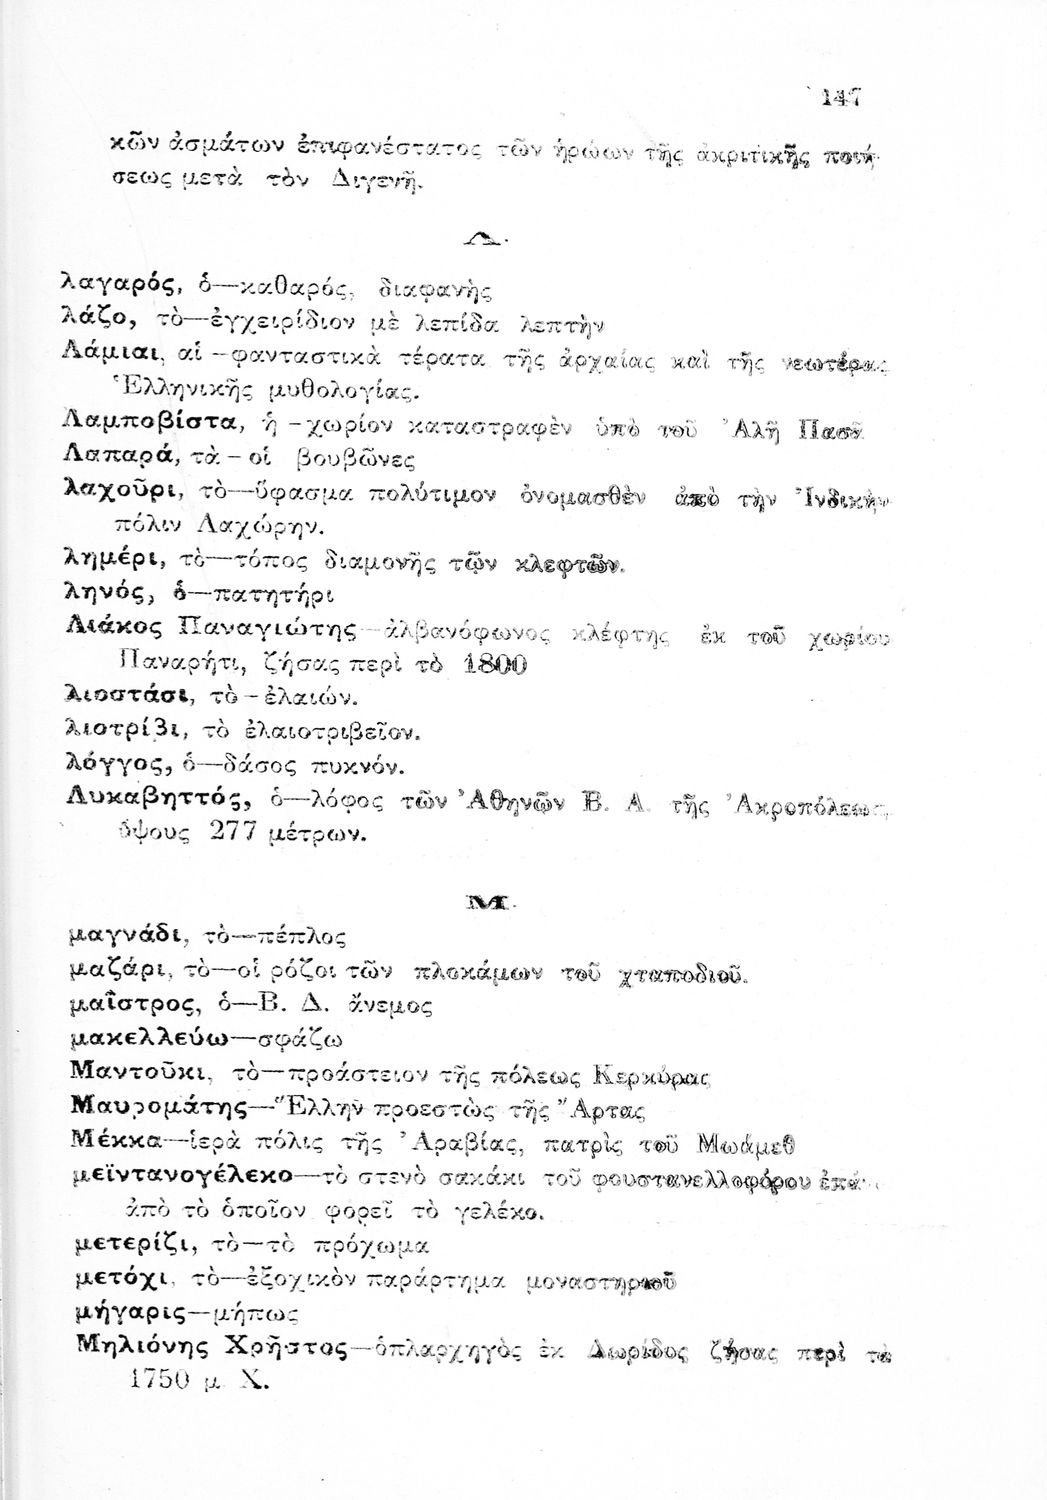 147
κῶν ἀσμάτων ἐπιφανέστατος τῶν ἡρώων τῆς ἀκριτικῆς ποιή-
σεως μετὰ τὸν Διγενῆ.
Λ.
λαγαρός, ὁ—καθαρός, διαφανὴς
λάζο, τὸ—ἐγχειρίδιον μὲ λεπίδα λεπτὴν
Λάμιαι, αἱ -φανταστικὰ τέρατα τῆς ἀρχαίας καὶ τῆς νεωτέρας
Ἑλληνικῆς μυθολογίας.
Λαμποβίστα, ἡ -χωρίον καταστραφὲν ὑπὸ τοῦ Ἀλῆ Πασᾶ
Λαπαρά, τὰ - οἱ βουβῶνες
λαχοῦρι, τὸ—ὕφασμα πολύτιμον ὀνομασθὲν ἀπὸ τὴν Ἰνδικὴν
πόλιν Λαχώρην.
λημέρι, τὸ—τόπος διαμονῆς τῶν κλεφτῶν.
ληνός, ὁ—πατητήρι
Λιάκος Παναγιώτης—ἀλβανόφωνος κλέφτης ἐκ τοῦ χωρίου
Παναρήτι, ζήσας περὶ τὸ 1800
λιοστάσι, τὸ - ἐλαιών.
λιοτρίβι, τὸ ἐλαιοτριβεῖον.
λόγγος, ὁ—δάσος πυκνόν.
Λυκαβηττός, ὁ—λόφος τῶν Ἀθηνῶν Β. Α. τῆς Ἀκροπόλεως,
ὕψους 277 μέτρων.
Μ.
μαγνάδι, τὸ—πέπλος
μαζάρι, τὸ—οἱ ρόζοι τῶν πλοκάμων τοῦ χταποδιοῦ.
μαΐστρος, ὁ—Β. Δ. ἄνεμος
μακελλεύω—σφάζω
Μαντοῦκι, τὸ—προάστειον τῆς πόλεως Κερκύρας
Μαυρομάτης—Ἕλλην προεστὼς τῆς Ἄρτας
Μέκκα—ἱερὰ πόλις τῆς Ἀραβίας, πατρὶς τοῦ Μωάμεθ
μεϊντανογέλεκο—τὸ στενὸ σακάκι τοῦ φουστανελλοφόρου ἐπά-
ἀπὸ τὸ ὁποῖον φορεῖ τὸ γελέκο.
μετερίζι, τὸ—τὸ πρόχωμα
μετόχι, τὸ—ἐξοχικὸν παράρτημα μοναστηριοῦ
μήγαρις—μήπως
Μηλιόνης Χρῆστος—ὁπλαρχηγὸς ἐκ Δωρίδος ζήσας περὶ τὰ
1750 μ. Χ.